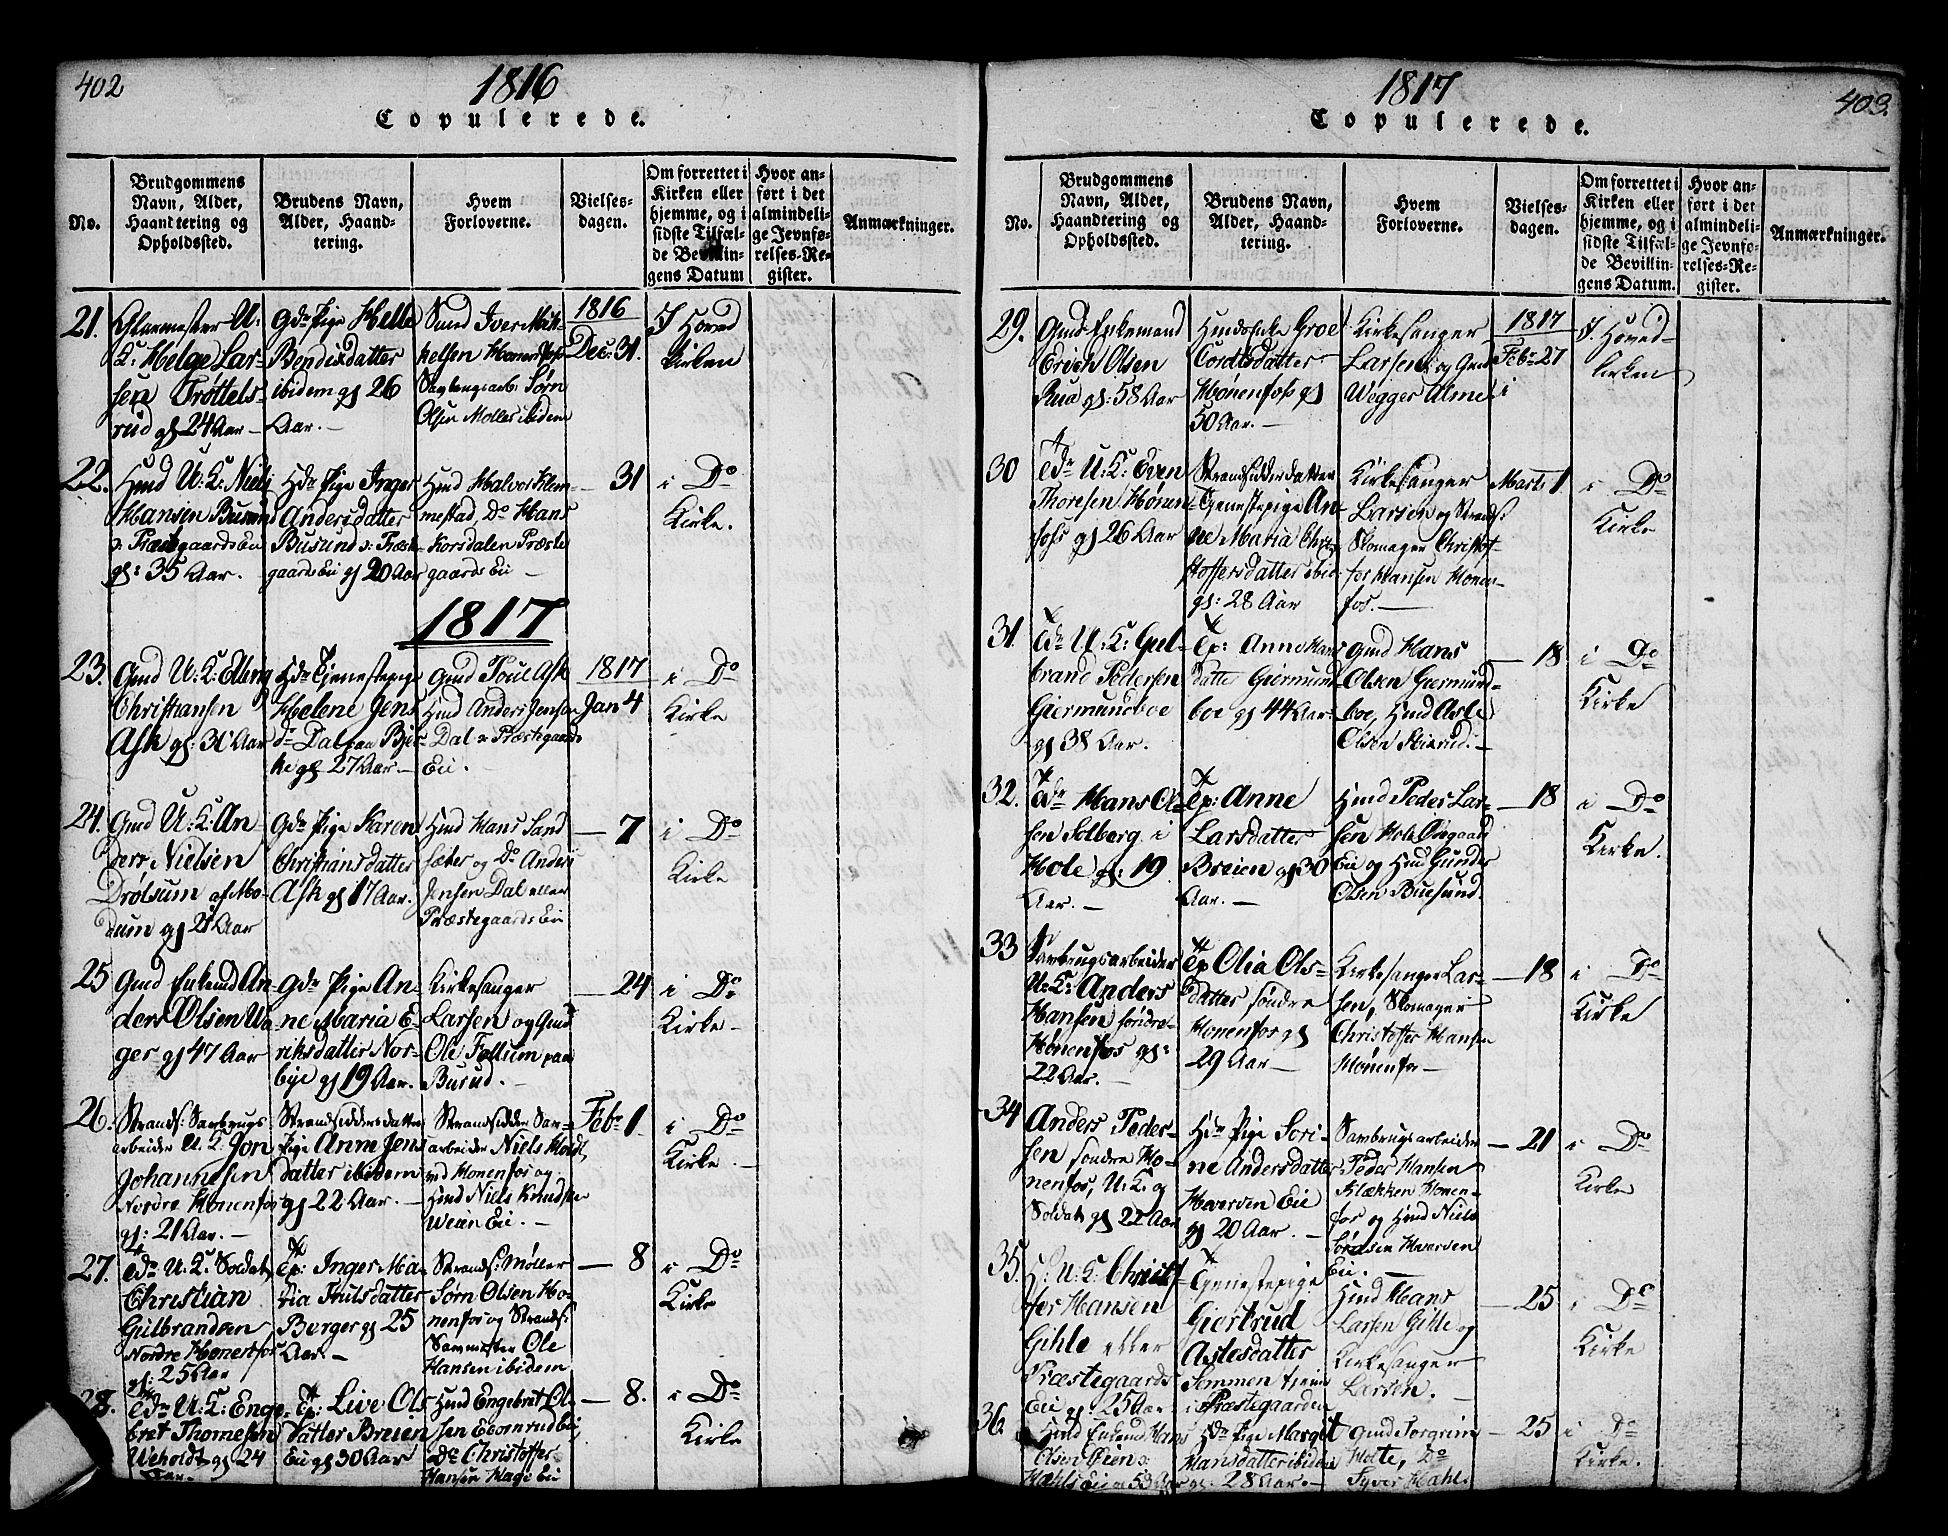 402
1816
Copulerede.
No.
Brudgommens
Navn, Alder,
Haandtering og
Opholdssted.
Brudens Navn,
Alder, Haand-
tering.
Hvem
Forloverne.
Vielses-
dagen.
Om forrettet i
Kirken eller
hjemme, og i
sidste Tilfæl-
de Bevillin-
gens Datum
Hvor an-
ført i det
almindeli-
ge Jevnfø-
relses-Re-
gister.
Anmærkninger.
21.
Glarmester U:
K: Helge Lar-
sen Trøttels-
rud gl 24 Aar —
Gdr Pige Helle
Bendixdatter
ibidem gl 26
Aar. —
Smed Iver Mik-
kelsen Hønefos
Sørn
Olsen Møller ibidem
1816
Dec: 31.
I Hoved
Kirken
22.
Hmd U: K: Niels
Hansen Busund
Præstegaards Eie
gl: 35 Aar.
Hdr Pige Inger
Andersdatter
Busund Præste-
gaards Eie gl 20 Aar
Hmd Halvor Klem-
mestad, Do Hans
Korsdalen Præste
gaards Eie —
— 31
i Do
Kirke.
1817
23.
Gmd U: K: Elling
Christiansen
Ask gl: 30 Aar
Hdr Tjenestepige
Helene Jens
dr Dal paa Bjer-
ke gl 27 Aar —
Gmd Poul Ask
Hmd Anders Jensen
Dal Præstegaards
Eie.
1817
Jan 4
i Do
Kirke
24.
Gmd U: K: An
ders Nielsen
Drolsum af Mo-
dum gl 21 Aar
Gdr Pige Karen
Christiansdatter
Ask gl 17 Aar.
Hmd Hans Sand
sæter og Do Anders
Jensen Dal eller
Præstegaards Eie
— 7
i Do
Kirke
25
Gmd Enkemd An-
ders Olsen Wa-
ger gl 47 Aar
Gdr Pige An-
ne Maria E-
riksdatter Nor-
bye gl 19 Aar.
Kirkesanger
Larsen og Gmd
Ole Follum paa
Busud. —
— 24
i Do
Kirke —
26.
Strands: Saubrugs
arbeider U. K. Jon
Johannesen
Nordre Honenfos
gl: 21 Aar. —
Strandsiddersdatter
Pige Anne Jens
datter ibidem
gl 22 Aar. —
Strandsidder Sau-
arbeider Niels Holdt
ved Honenfos og
Hmd Niels Knudsen
Weien Eie. —
Febr 1
i Do
Kirke —
27.
U. K. Soldat
Christian
Gulbrandsen
Nordre Honenfos
gl: 25 Aar
Tp: Inger Ma-
ria Truls datter
Berger gl 25
Aar. —
Strands: Møller
Sørn Olsen Ho-
nenfos og Strands:
Saumester Ole
Hansen ibidem
— 8
i Do
Kirke
28.
U: K: Enge-
bret Thomesen
Weholdt gl 24
Aar.
Tp: Live Ols
datter Breien
Eie gl 30 Aar
Hmd Engebret Ol-
sen Eie
Do Christoffer
Hansen Hage Eie
— 8.
i Do
Kirke
1817
403.
Copulerede.
No.
Brudgommens
Navn, Alder,
Haandtering og
Opholdssted.
Brudens Navn,
Alder, Haand-
tering.
Hvem
Forloverne.
Vielses-
dagen.
Om forrettet i
Kirken eller
hjemme, og i
sidste Tilfæl-
de Bevillin-
gens Datum.
Hvor an-
ført i det
almindeli-
ge Jevnfø-
relses-Re-
gister.
Anmærkninger.
29.
Gmd Enkemand
Erich Olsen
Rua gl: 58 Aar
Huuds Enke Groe
Cordtsdatter
Hønenfos gl
50 Aar. —
Kirkesanger
Larsen og Gmd
Wegger Alme
1817
Febr 27
I. Hoved-
kirken
30
U: K: Even
Thoresen Hønen-
fos gl 26 Aar
Strandsidderdatter
Tjenestepige An-
ne Maria Chri-
stoffersdatter ibid
gl: 28 Aar
Kirkesanger
Larsen og Strands:
Skomager Christof-
for Hansen Honen-
fos. —
Marts 1
i Do
Kirke
31.
U: K: Gul-
brand Pedersen
Giermundboe
gl 38 Aar.
Tp: Anne Hans
datter Giermund
boe gl 44 Aar
Gmd Hans
Olsen Giermund-
boe, Hmd Asle
Olsen —
— 18
i Do
Kirke
32.
Hans Ol-
sen Solberg i
Hole gl: 19
Aar. —
Tp: Anne
Larsdatter
Breien gl 30
Aar. —
Hmd Peder Lar-
sen Hole
Eie og Hmd Gunder
Olsen Busund.
— 18
i Do
Kirke.
33
Saubrugsarbeider
U: K: Anders
Hansen søndre
Hønenfos gl:
22 Aar. —
Tp Olia Ols-
datter søndre
Honenfos gl
29 Aar —
Kirkesanger Lar-
sen, Skomager
Christoffer Hansen
Hønenfos —
— 18
i Do
Kirke
34
Anders Peder-
sen søndre Ho-
nenfos, U: K: og
Soldat gl 22 Aar
Hdr Pige Sori-
ne Andersdatter
Hverven Eie
gl 20 Aar. —
Saubrugsarbeider
Peder Hansen
Klækken Honen-
fos og Hmd Niels
Sørensen Hverven
Eie. —
— 21
i Do
Kirke
35.
U: K: Christof-
fer Hansen
Gihle eller
Præstegaards
Eie gl 25 Aar
Tjenestepige
Giertrud
Aslesdatter
Semmen tjener
i Præstegaarden
Hmd Hans
Larsen Gihle og
Kirkesanger
Larsen. —
— 25
i Do
Kirke
36.
Hmd Enkemd Hans
Olsen
Hahls Eie 53 Aar
Hdr Pige Margit
Hansdatter ibidem
gl: 28 Aar. —
Gmd Torgrim
Holte, Do
Syver Hahl.
— 25
i Do
Kirke.